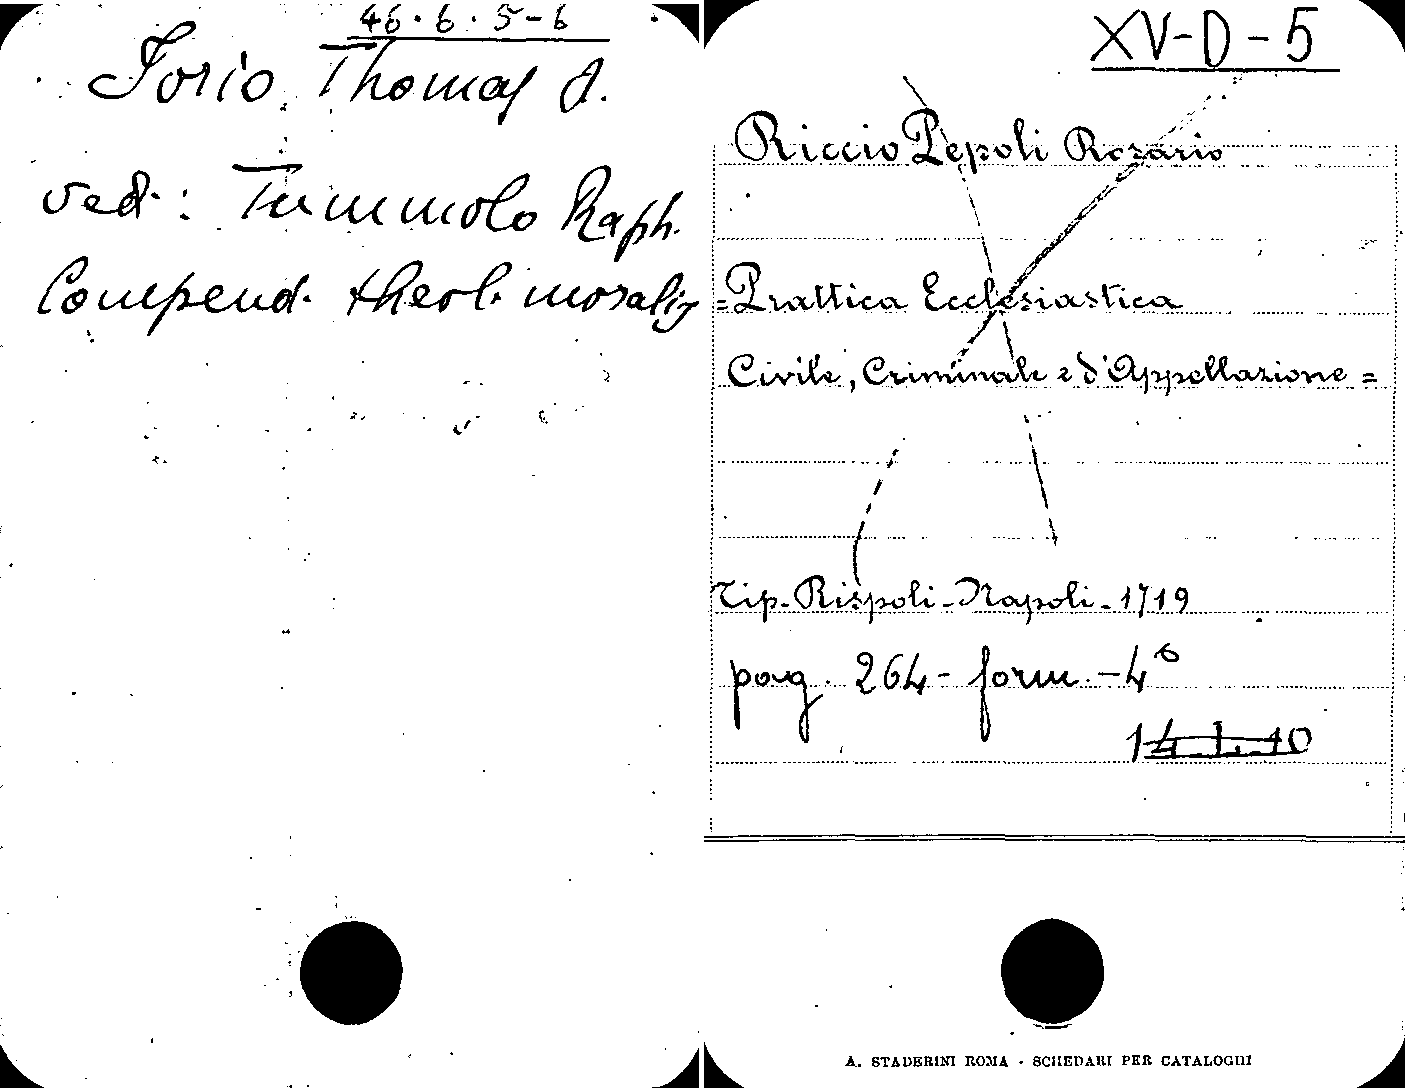 46.6.5-6
Jorio Thomas A.
ved: Tummolo Raph.
Compend. theol. moralis
XV-D-5
Riccio Pepoli Rosario
=Prattica Ecclesiastica
Civile, Criminale e d'Appellazione=
Tip. Rispoli - Napoli - 1719
pag. 264 - form. - 4°
14.L.10
A. STADERINI ROMA - SCHEDARI PER CATALOGHI